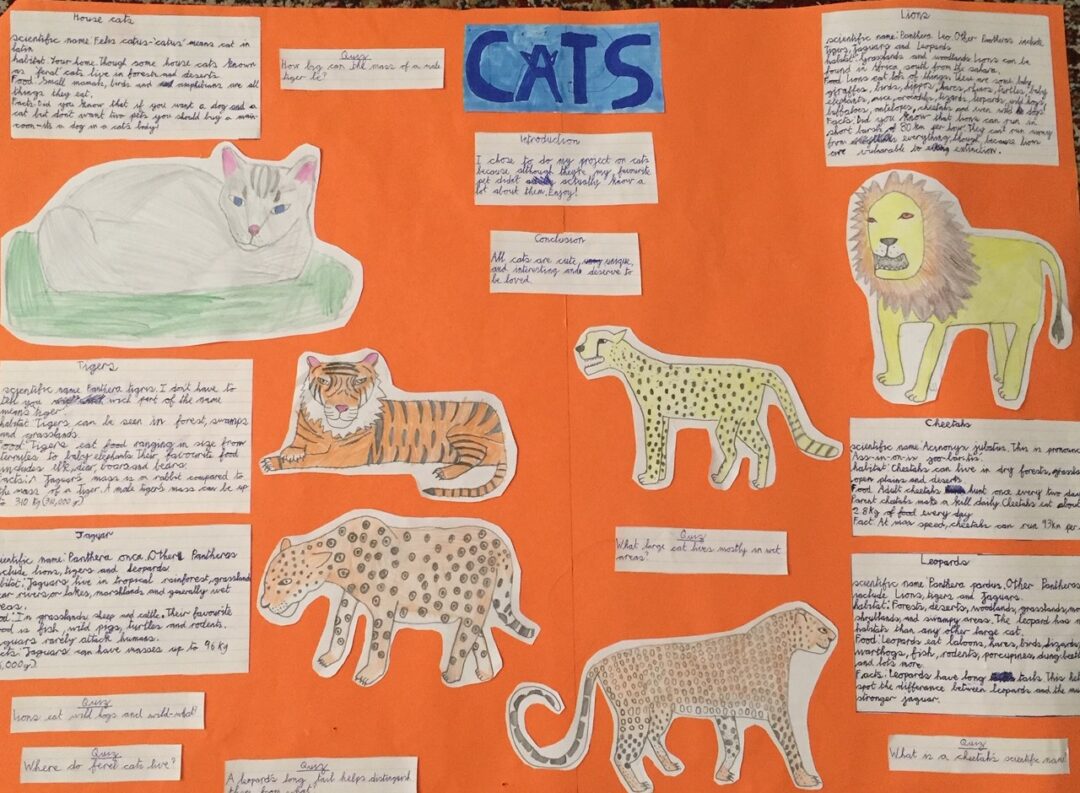 House cats
scientific name: Feles catus-'catus' means cat in
latin
habitat: Your home. Though some house cats known
as feral cats live in forests and deserts.
Food: Small mamals, birds and amphibians are all
things they eat.
Facts: Did you know that if you want a dog and a
cat but don't want two pets you should buy a main-
coon-its a dog in a cats body!
Quiz
How big can the mass of a male
tiger be?
CATS
Introduction
I chose to do my project on cats
because although they're my favourite
pet I didn't actually know a
lot about them. Enjoy!
Conclusion
All cats are cute, unique,
and interesting and deserve to
be loved.
Lions
scientific name: Panthera Leo. Other Pantheras include
Tigers, Jaguars and Leopards
habitat: grasslands and woodlands. Lions can be
found in Africa, south from the sahara.
Food: Lions eat lots of things. These are some: baby
giraffes, birds, hippos, hares, turtles, baby
elephants, mice, lizards, leopards, wild hogs,
buffaloes, antelopes, cheetahs and even wild dogs!
Facts: Did you know that lions can run in
short bursts of 80 km per hour. They can't run away
from everything though because lion
are vulnerable to extinction.
Tigers
scientific name: Panthera tigris. I don't have to
tell you wich part of the name
means tiger.
habitat: Tigers can be seen in forest, swamps
and grasslands.
Food: Tigers eat food ranging in size from
termites to baby elephants. Their favourite food
includes elk, dear, boars and bears.
Facts: A Jaguar's mass is a rabbit compared to
the mass of a tiger. A male tiger's mass can be up
to 310 Kg
Jaguar
scientific name: Panthera onca. Other Pantheras
include lions, tigers and leopards.
habitat: Jaguars live in tropical rainforest, grasslands
near rivers or lakes, marshlands and generally wet
areas.
Food: In grasslands sheep and cattle. Their favourite
food is fish, wild pigs, turtles and rodents.
Jaguars rarely attack humans.
Facts: Jaguars can have masses up to 96 Kg
Cheetah
scientific name: Acinonyx jubatus. This is pronounc
Ass-in-on-ix joo-bar-tis.
habitat: Cheetahs can live in dry forests, grassla
open plains and deserts
Food: Adult cheetahs hunt once every two day
Parent cheetahs make a kill daily. Cheetahs eat about
2.8Kg of food every day
Fact: At max speed, cheetahs can run 93km per
Quiz
What large cat lives mostly in wet
areas?
Leopards
scientific name: Panthera pardus. Other Pantheras
include Lions, tigers and Jaguars.
habitat: Forests, deserts, woodlands, grasslands,
shrublands and swampy areas. The leopard has
habitats than any other large cat.
Food: Leopards eat baboons, hares, birds, lizards,
warthogs, fish, rodents, porcupines, dung beetl
and lots more.
Facts: Leopards have long tails. This hel
spot the difference between leopards and the mu
stronger jaguar.
Quiz
Lions eat wild hogs and wild-what?
Quiz
Where do feral cats live?
Quiz
A leopard's long tail helps distinguish
them from what
Quiz
What is a cheetah's scientific name